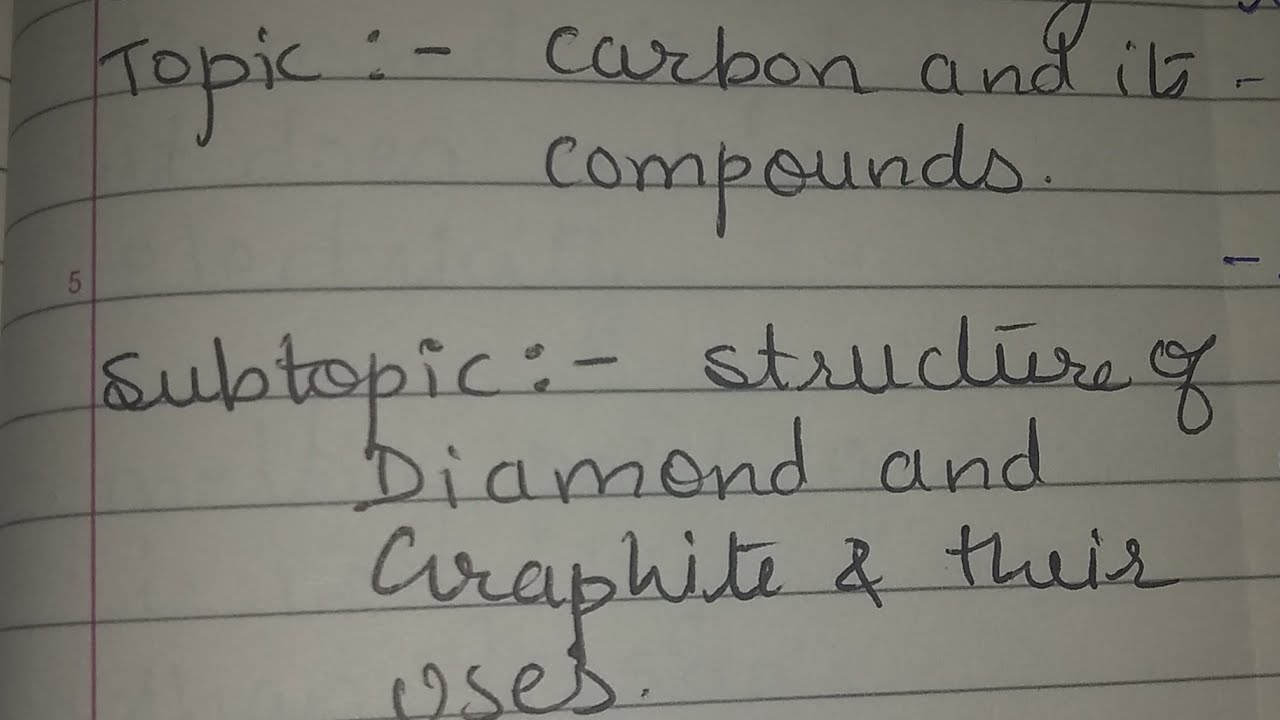 Topic :- Carbon and its -
compounds.
5
Subtopic :- structure of
Diamond and
Graphite & their
uses.